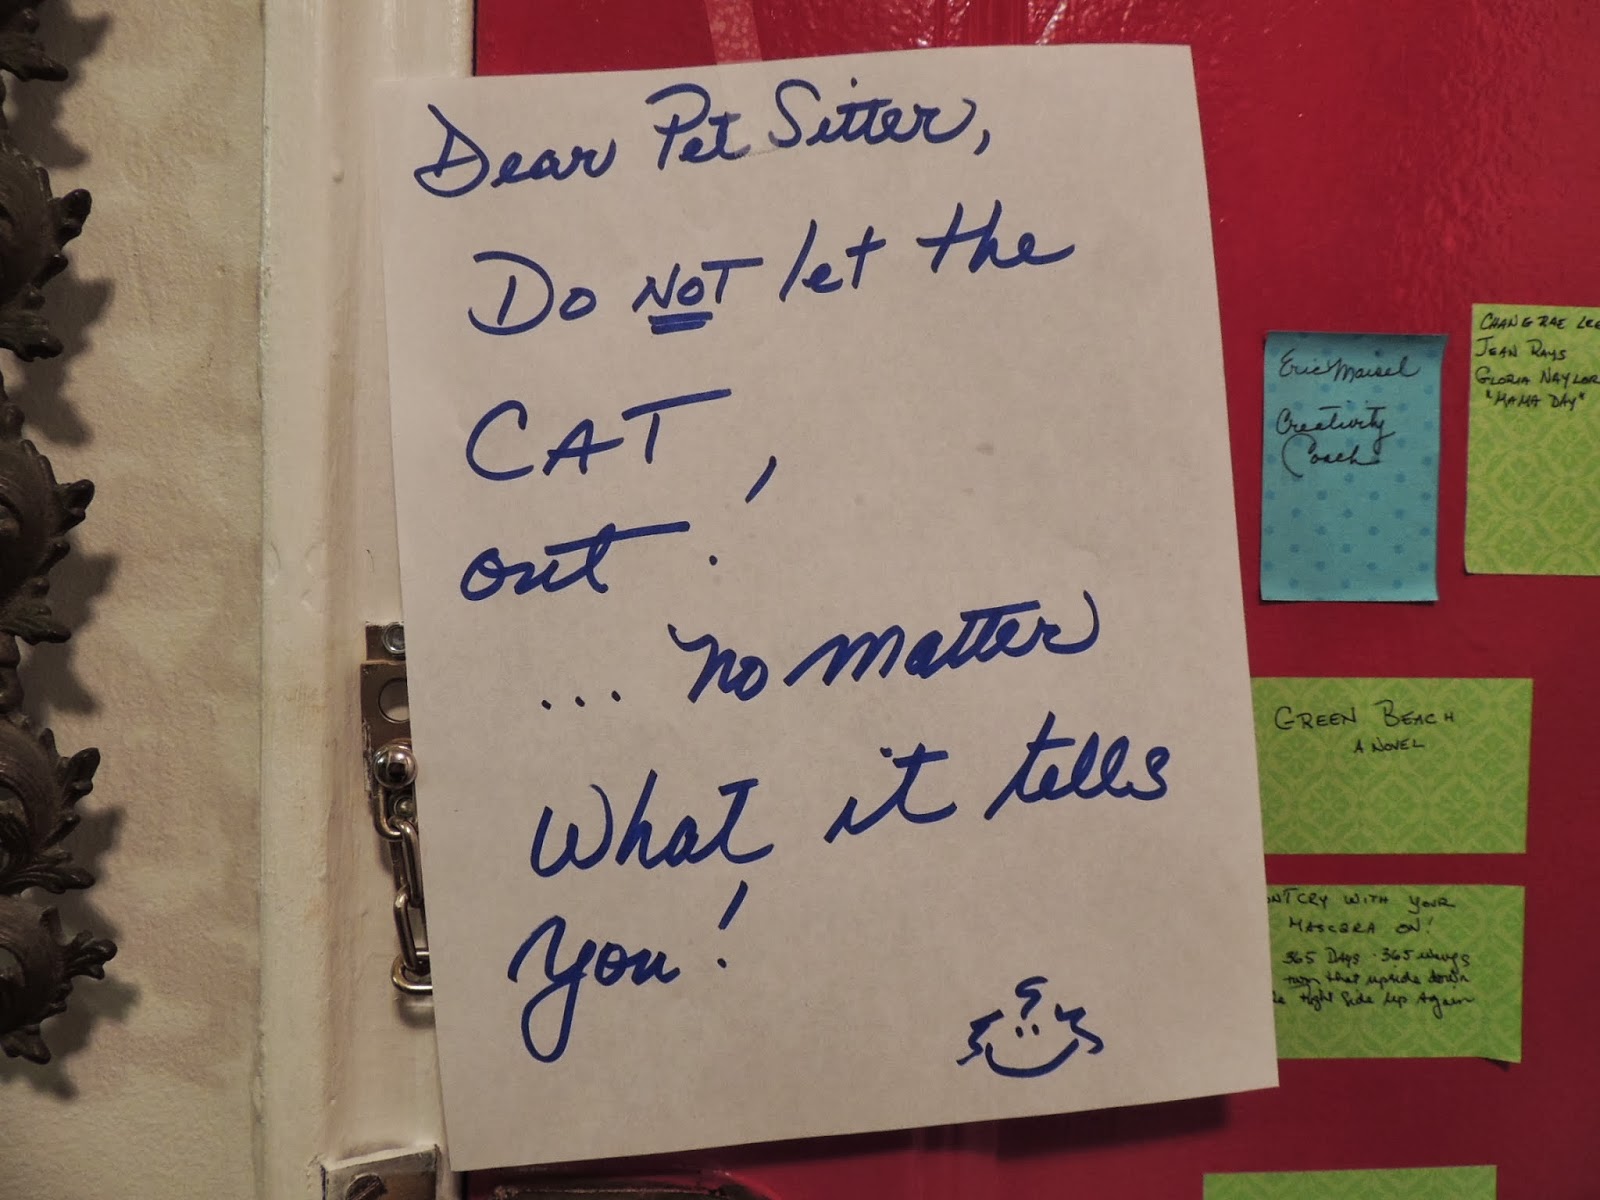 Dear Pet Sitter,
Do NOT let the
CAT
out!
... no matter
what it tells
you!
Eric Maisel
Creativity
Coach
CHANG RAE LEE
JEAN RAYS
GLORIA NAYLOR
"MAMA DAY"
GREEN BEACH
A NOVEL
ONT CRY WITH YOUR
MASCERA ON!
365 DAYS · 365 ways
turn that upside down
right side up again